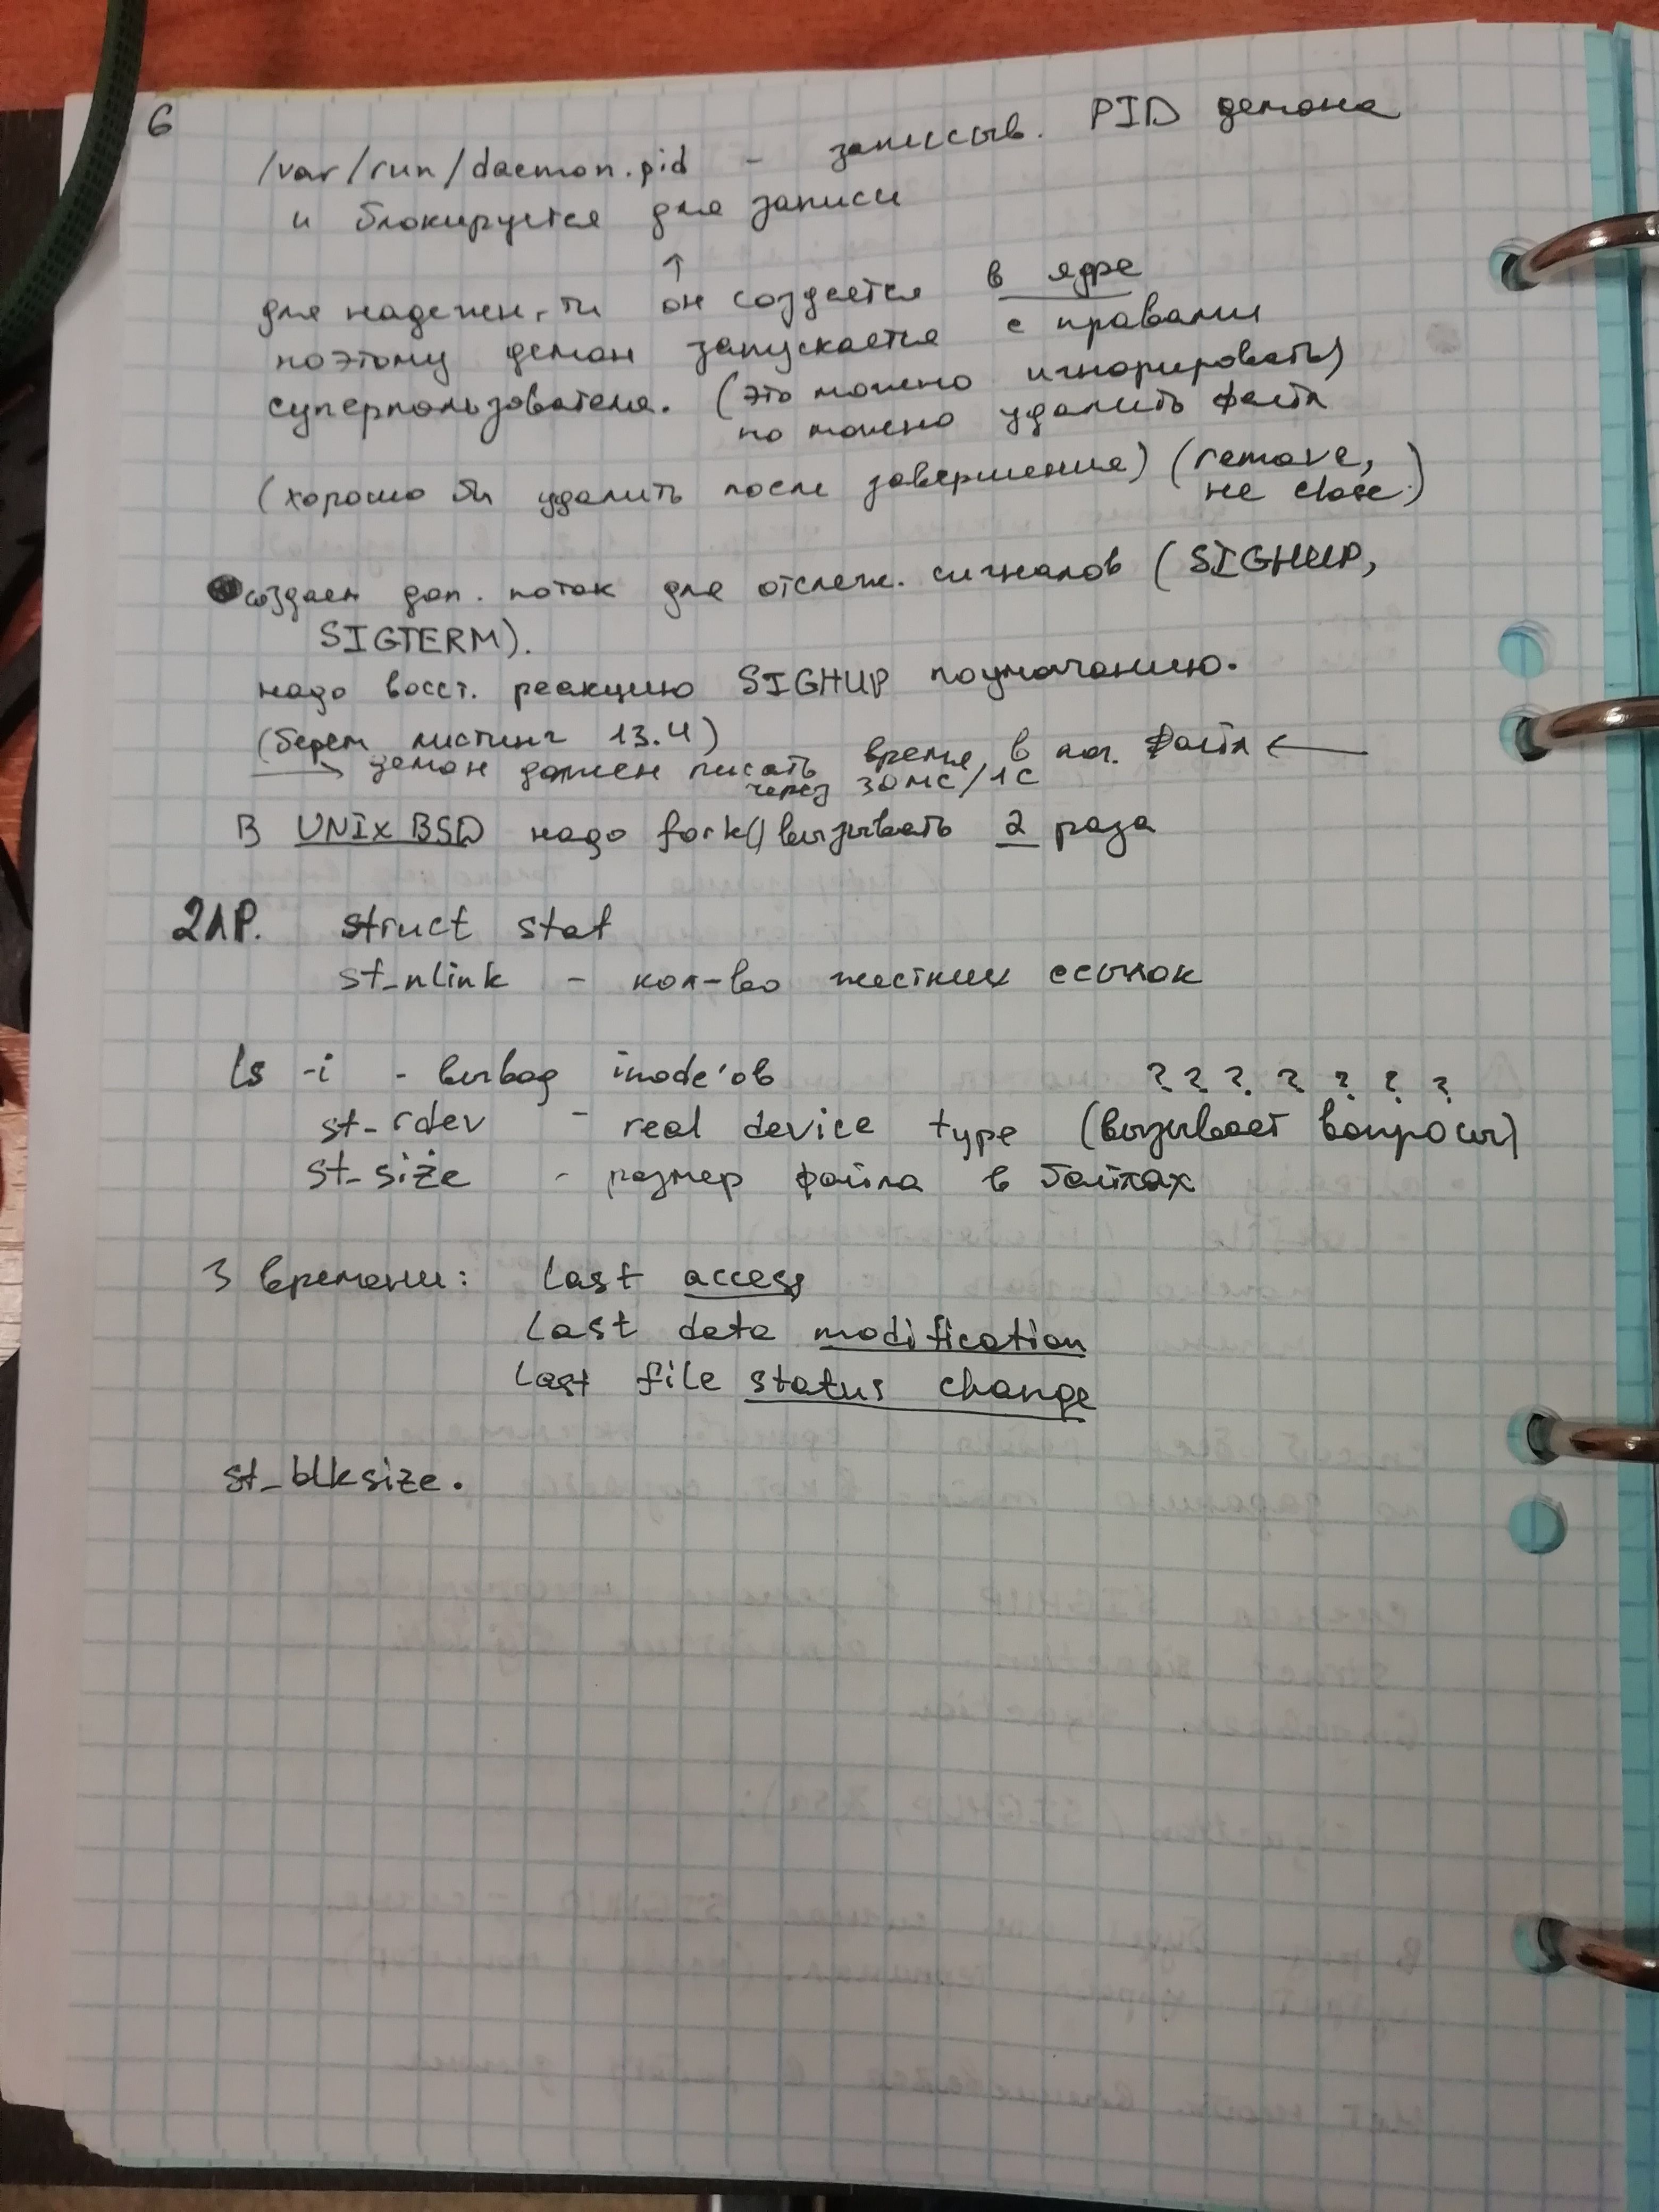 6
/var/run/daemon.pid - записыв. PID демона
и блокируется для записи
↑
для надежн-ти он создается в ядре
поэтому демон запускается с правами
суперпользователя. (это можно игнорировать)
но можно удалить файл
(хорошо бы удалить после завершения) (remove,
не close.)
создаем доп. поток для отслеж. сигналов (SIGHUP,
SIGTERM).
надо восст. реакцию SIGHUP поумолчанию.
(берем листинг 13.4)
→ демон должен писать время в лог. файл ←
через 30мс/1с
В UNIX BSD надо fork() вызывать 2 раза
2ЛР. struct stat
st_nlink - кол-во жестких ссылок
ls -i - вывод inode'ов
? ? ? ? ? ? ?
st_rdev - real device type (вызывает вопросы)
st_size - размер файла в байтах
3 времени: last access
last data modification
last file status change
st_blksize.